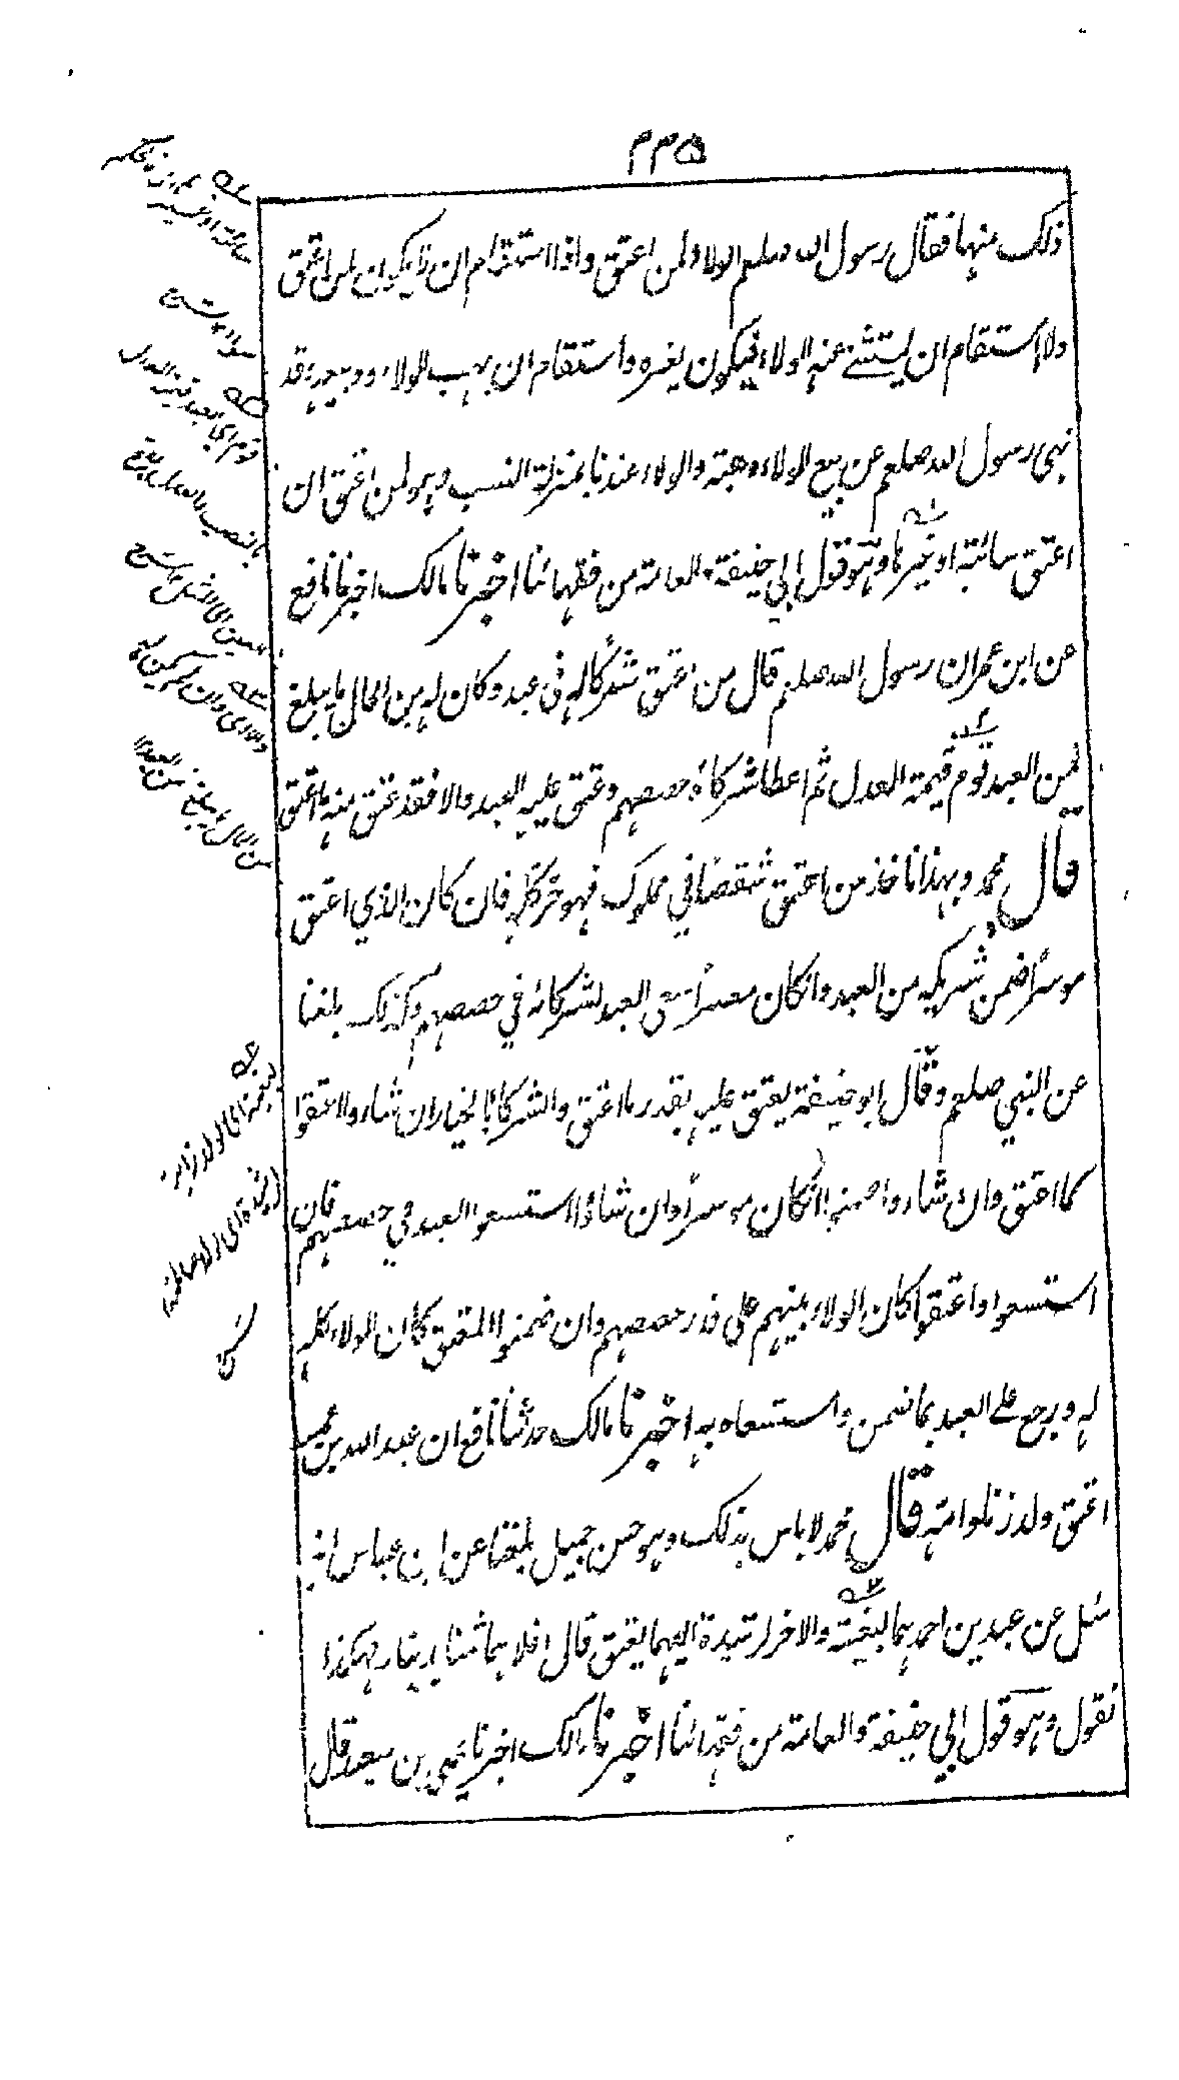 ٣٣٥
ذلك منها فقال رسول الله صلعم الولاء لمن اعتق واذا استقام ان لا يكون لمن اعتق
ولاء استقام ان يستثنى عنه الولاء فيكون لغيره واستقام ان يهب الولاء ويبيعه وقد
نهى رسول الله صلعم عن بيع الولاء وهبته والولاء عندنا بمنزلة النسب وهو لمن اعتق ان
اعتق سائبة او غيرها وهو قول ابي حنيفة والعامة من فقهائنا اخبرنا مالك اخبرنا نافع
عن ابن عمر ان رسول الله صلعم قال من اعتق شركا له في عبد وكان له من المال ما يبلغ
ثمن العبد قوم قيمة العدل ثم اعطا شركاه حصصهم وعتق عليه العبد والا فقد عتق منه ما اعتق
قال محمد وبهذا ناخذ من اعتق شقصا في مملوك فهو حر كله فان كان الذي اعتق
موسرا ضمن شريكه من العبد وانكان معسرا سعى العبد لشركائه في حصصهم وكذلك بلغنا
عن النبي صلعم وقال ابو حنيفة يعتق عليه بقدر ما اعتق والشركا بالخيار ان شاء وا اعتقوا
كما اعتق وان شاء وا ضمنوه انكان موسرا وان شاؤا استسعوا العبد في حصصهم فان
استسعوا واعتقوا كان الولاء بينهم على قدر حصصهم وان ضمنوا المعتق كان الولاء كله
له ورجع على العبد بما ضمن واستسعاه به اخبرنا مالك حدثنا نافع ان عبد الله بن عمر
اعتق ولد زنا وامه قال محمد لا باس بذلك وهو حسن جميل بلغنا عن ابن عباس انه
سئل عن عبدين احدهما لبغية والاخر لرشيدة ايهما يعتق قال اغلاهما ثمنا بدينار فهكذا
نقول وهو قول ابي حنيفة والعامة من فقهائنا اخبرنا مالك اخبرنا يحيى بن سعيد قال
سائبة او غير
قوم اي العبد قيمة العدل
بالنصب
من المال ما يبلغ ثمن العبد
لبغية اي لولد زانية
لرشيدة اي لولد صالحة